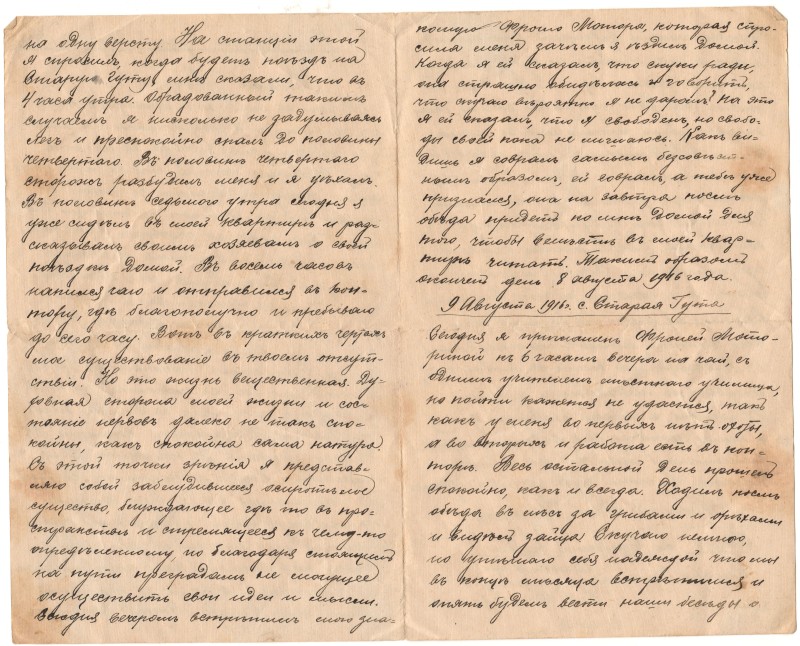 на одну версту. На станціи этой
я спросилъ, когда будетъ поѣздъ на
Старую Гуту, мнѣ сказали, что въ
4 часа утра. Обрадованный такимъ
случаемъ я нисколько не задумываясь
легъ и преспокойно спалъ до половины
четвертаго. Въ половинѣ четвертаго
сторожъ разбудилъ меня и я уѣхалъ.
Въ половинѣ седьмого утра сегодня я
уже сидѣлъ въ моей квартирѣ и раз-
сказывалъ своимъ хозяевамъ о своей
поѣздкѣ домой. Въ восемь часовъ
напился чаю и отправился въ кон-
тору, гдѣ благополучно и пребываю
до сего часу. Вотъ въ краткихъ чертахъ
мое существованіе въ твоемъ отсут-
ствіи. Но это жизнь вещественная. Ду-
ховная сторона моей жизни и сос-
тояніе нервовъ далеко не такъ спо-
койны, какъ спокойна сама натура.
Съ этой точки зрѣнія я представ-
ляю собой заблудившееся осиротѣлое
существо, блуждающее гдѣ то въ про-
странствѣ и стремящееся къ чему-то
опредѣленному, но благодаря стоящимъ
на пути преградамъ не могущее
осуществить свои идеи и мысли.
Сегодня вечеромъ встрѣтилъ мою зна-
комую Фросю Мотора, которая спро-
сила меня зачѣмъ я ѣздилъ домой.
Когда я ей сказалъ, что скуки ради,
она страшно обидѣлась и говоритъ,
что стало вѣроятно я не даромъ! На это
я ей сказалъ, что я свободенъ, но свобо-
ды своей пока не лишаюсь. Какъ ви-
дишь я совралъ самымъ безсовѣст-
нымъ образомъ, ей совралъ, а тебѣ уже
признался, она на завтра послѣ
обѣда придетъ ко мнѣ домой для
того, чтобы вмѣстѣ въ моей квар-
тирѣ читать. Такимъ образомъ
оконченъ день 8 августа 1916 года.
9 Августа 1916 г. с. Старая Гута
Сегодня я приглашенъ Фросей Мото-
риной къ 6 часамъ вечера на чай, съ
однимъ учителемъ мѣстного училища,
но пойти кажется не удастся, такъ
какъ у меня во первыхъ нѣтъ охоты,
а во вторыхъ и работа есть въ кон-
торѣ. Весь остальной день прошелъ
спокойно, какъ и всегда. Ходилъ послѣ
обѣда въ лѣсъ за грибами и орѣхами
и видѣлъ зайца. Скучаю немного,
но утѣшаю себя надеждой что мы
въ концѣ мѣсяца встрѣтимся и
опять будемъ вести наши бесѣды о